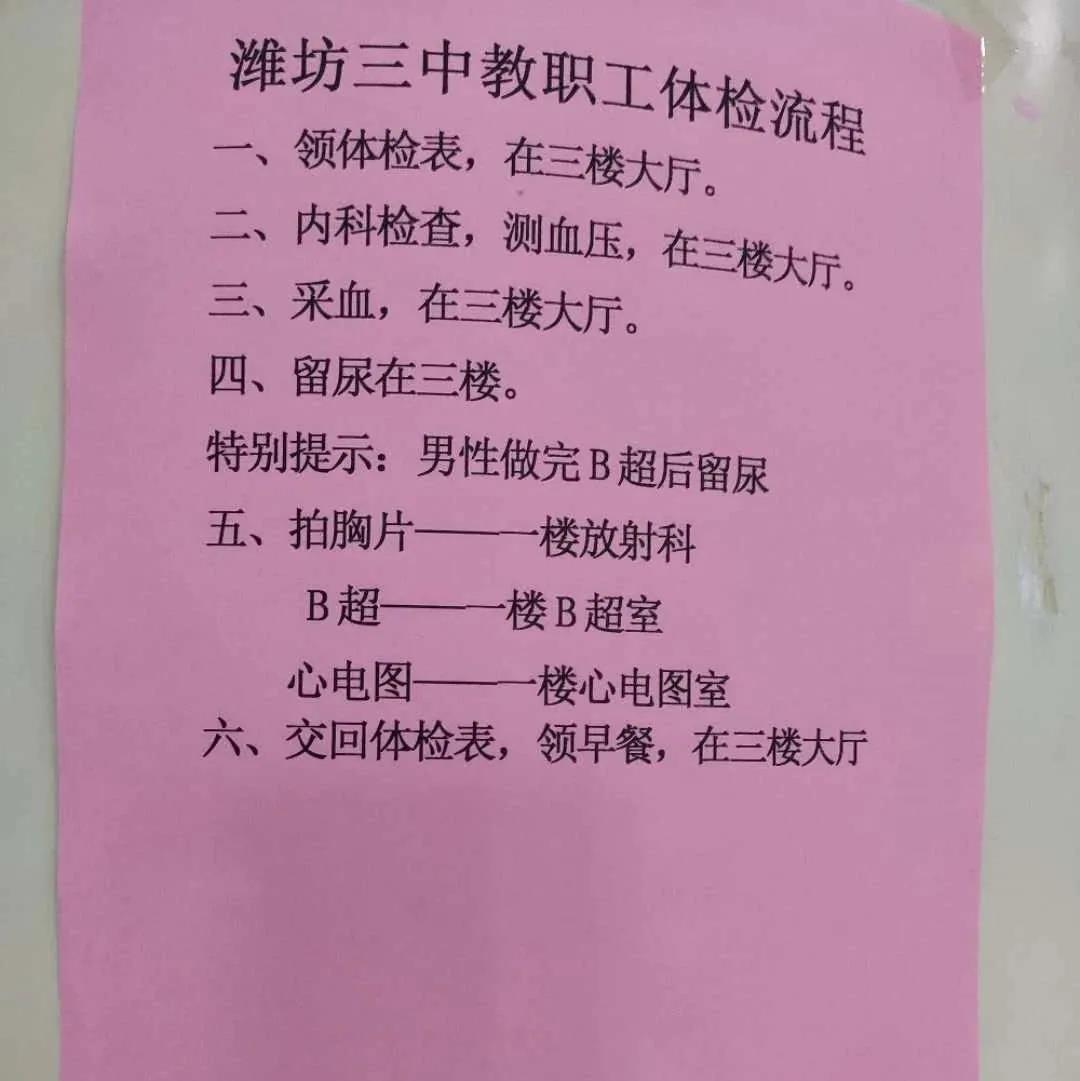 潍坊三中教职工体检流程
一、领体检表，在三楼大厅。
二、内科检查，测血压，在三楼大厅。
三、采血，在三楼大厅。
四、留尿在三楼。
特别提示：男性做完B超后留尿
五、拍胸片———一楼放射科
B超———一楼B超室
心电图———一楼心电图室
六、交回体检表，领早餐，在三楼大厅